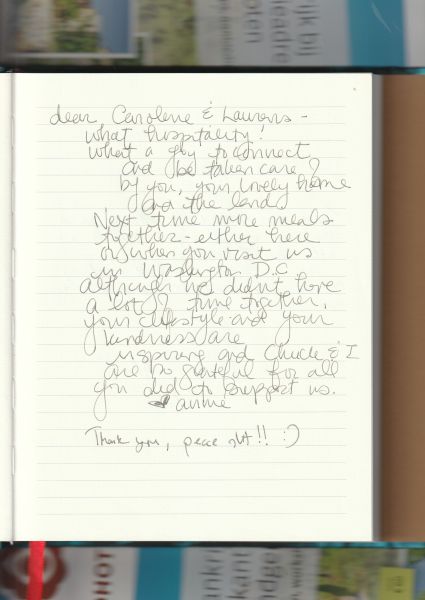 ijk bij
eadre
oten
dear Carolene & Laurens -
what hospitality!
what a joy to connect
and be taken care of
by you, your lovely home
and the land
Next time more meals
together - either here
or when you visit us
in Washington D.C.
although we didn't have
a lot of time together,
your lifestyle and your
kindness are
inspiring and Chuck & I
are so grateful for all
you did to support us.
anine
Thank you, peace out!! :)
HOT
ankri
kant
edge